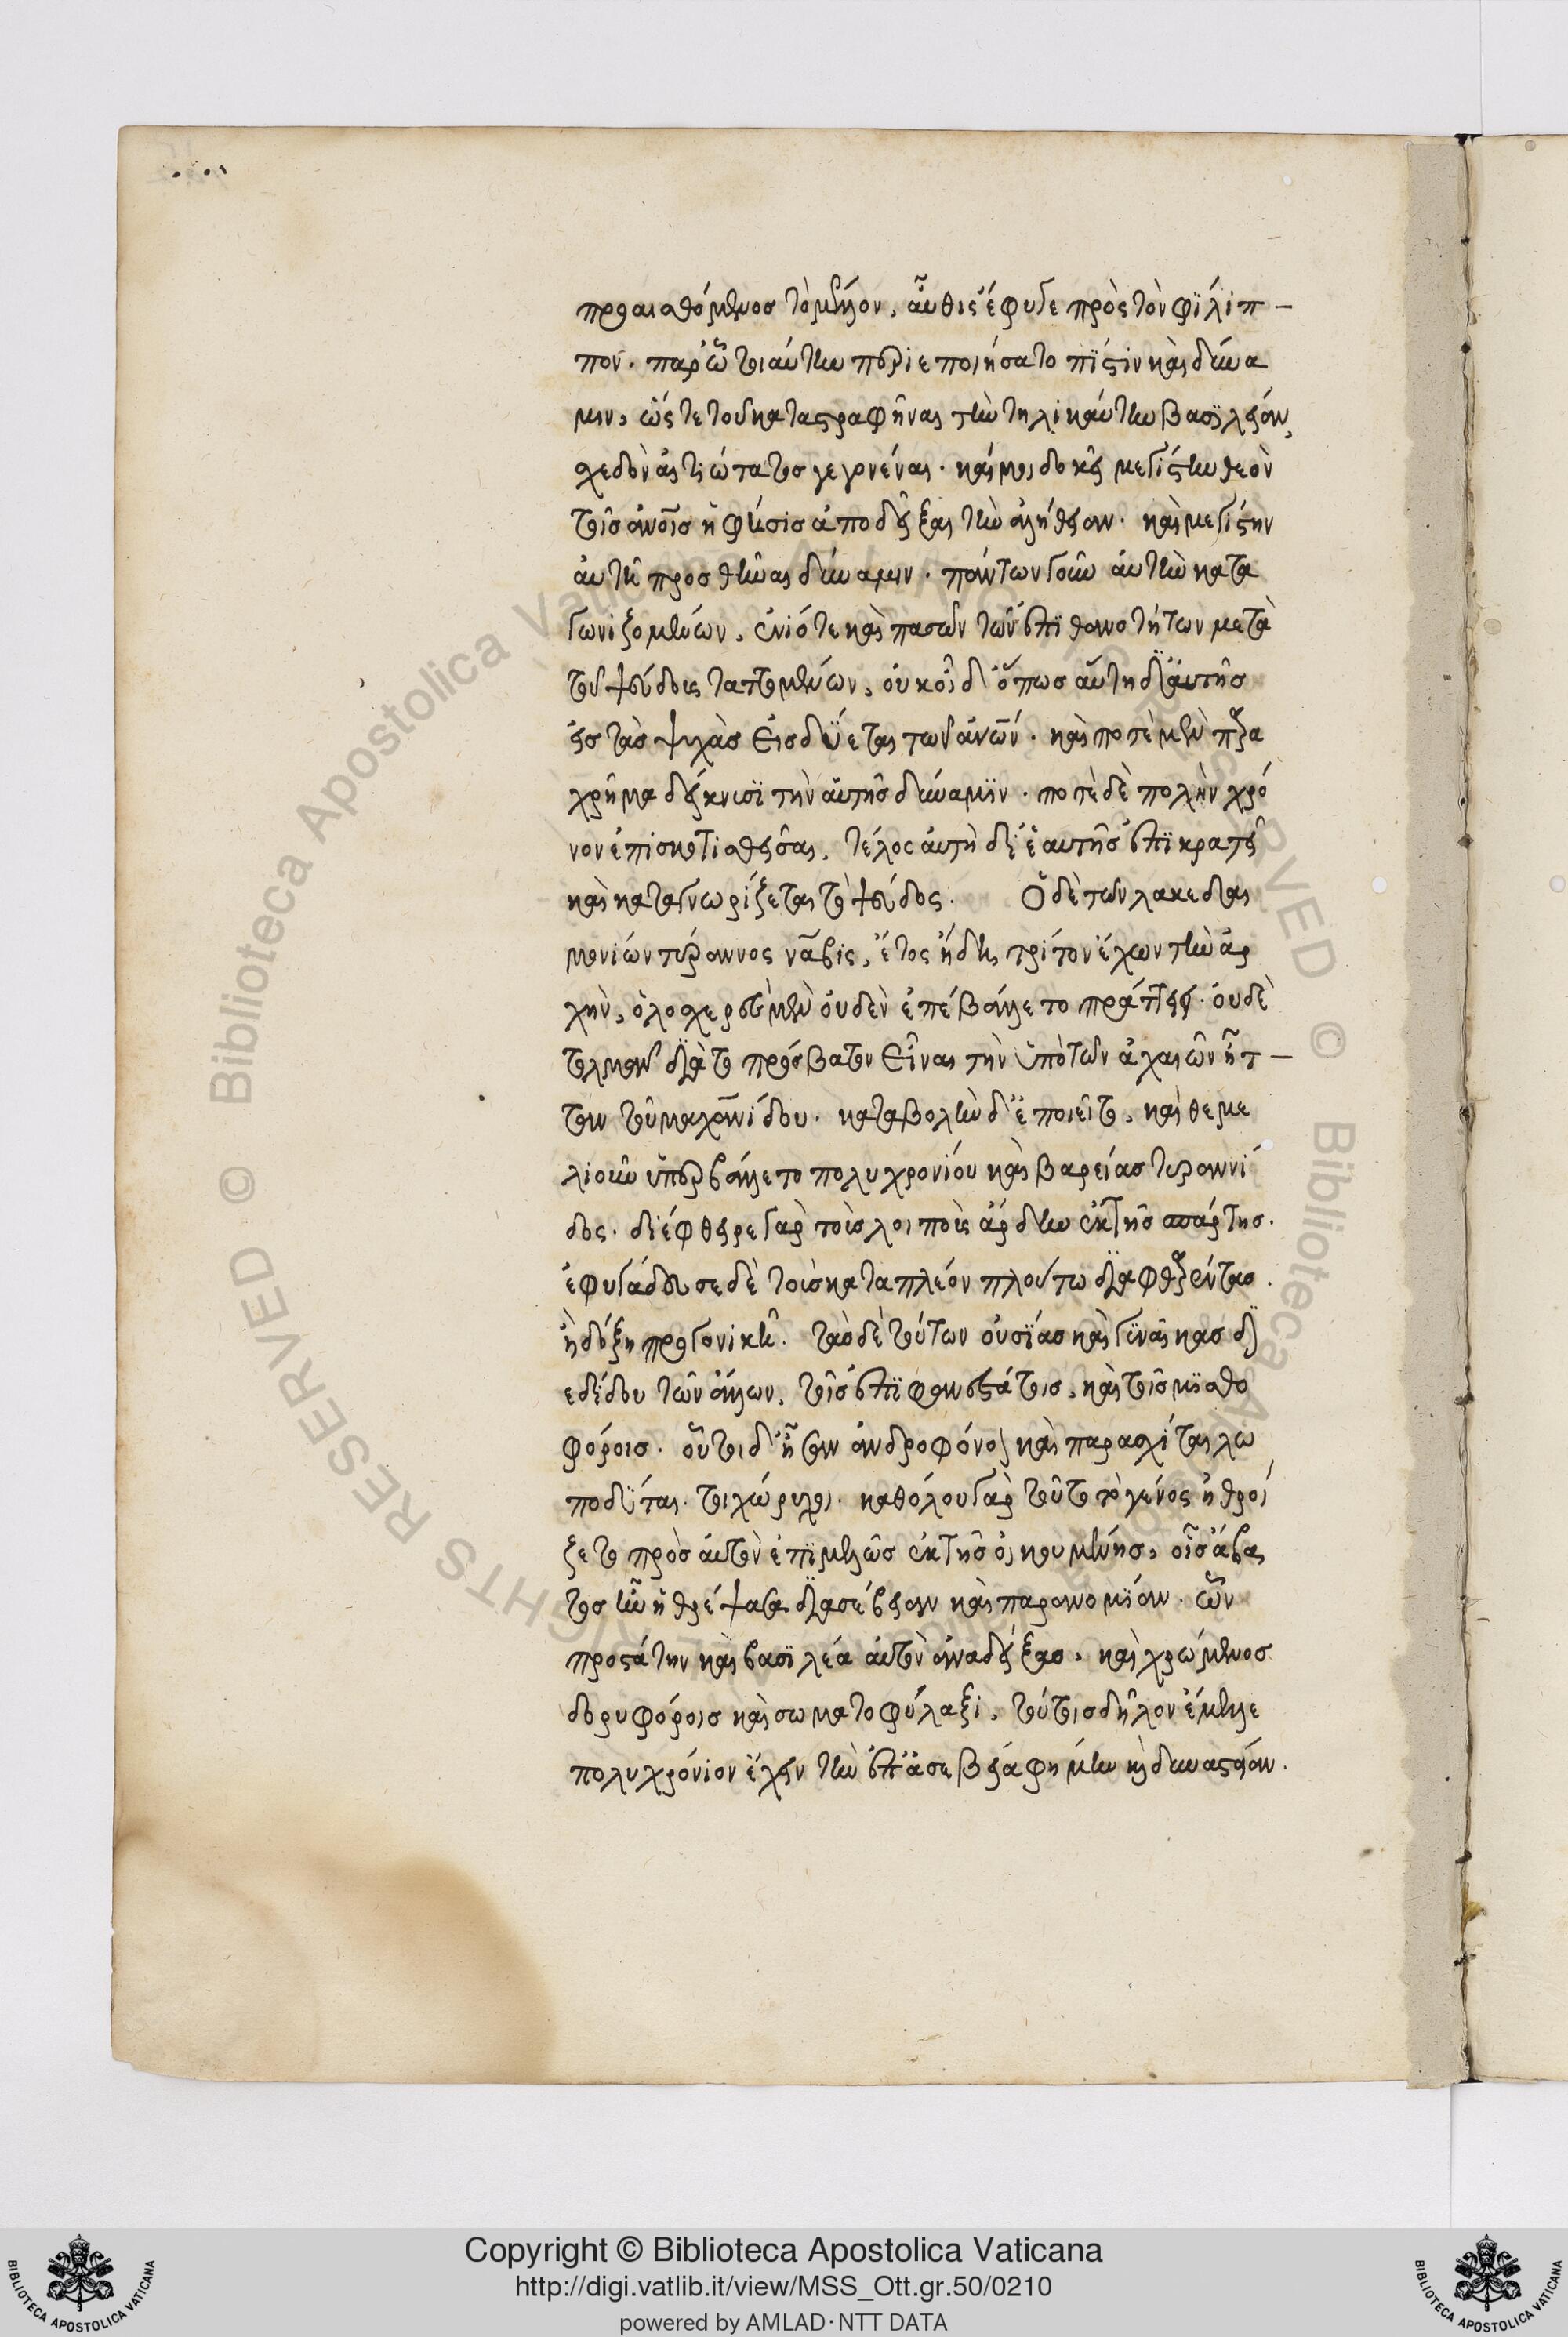 προαισθόμενος τὸ μέλλον, αὖθις ἔφυγε πρὸς τὸν φίλιπ-
πον. παρ' ᾧ τοιαύτην περιεποιήσατο πίστιν καὶ δύνα
μιν, ὥς τε τοῦ καταστραφῆναι τὴν τηλικαύτην βασιλείαν,
σχεδὸν αἰτιώτατος γεγονέναι. καί μοι δοκεῖ μεγίστην θεὸν
τοῖς ἀνοις ἡ φύσις ἀποδεῖξαι τὴν ἀλήθειαν. καὶ μεγίστην
αὐτῆ προσθεῖναι δύναμιν. πάντων γοῦν αὐτὴν κατα
γωνιζομένων, ἐνίοτε καὶ πασῶν τῶν πιθανοτήτων μετὰ
τοῦ ψεύδους ταττομένων, οὐκ οἶδ' ὅπως αὕτη δι' αὑτῆς
εἰς τὰς ψυχὰς εἰσδύεται τῶν ἀνων. καὶ ποτὲ μὲν παρα
χρῆμα δείκνυσι τὴν αὑτῆς δύναμιν. ποτὲ δὲ πολὺν χρό
νον ἐπισκοτισθεῖσαι, τέλος αὐτὴ δι' ἑαυτῆς ἐπικρατεῖ
καὶ καταγνωρίζεται τὸ ψεῦδος. Ὁ δὲ τῶν λακεδαι
μονίων τύραννος νάβις, ἔτος ἤδη τρίτον ἔχων τὴν ἀρ
χὴν, ὁλοσχερὲς μὲν οὐδὲν ἐπεβάλλετο πράττειν. οὐδὲ
τολμᾶν διὰ τὸ πρόσβατον εἶναι τὴν ὑπὸ τῶν ἀχαιῶν ἧτ-
ταν τοῦ μαχανίδου. καταβολὴν δ' ἐποιεῖτο, καὶ θεμε
λίουν ὑπερβάλλετο πολυχρονίου καὶ βαρείας τυραννί
δος. διέφθειρε γὰρ τοὺς λοιποὺς ἄρδην ἐκ τῆς σπάρτης.
ἐφυγάδευσε δὲ τοὺς κατὰ πλέον πλούτω διαφθερέντας.
ἢ δόξη προγονικῆ. τὰς δὲ τούτων οὐσίας καὶ γυναῖκας δι
εδίδου τῶν ἄλλων, τοῖς ἐπιφανεστάτοις, καὶ τοῖς μισθο
φόροις. οὗτοι δ' ἦσαν ἀνδροφόνοι καὶ παρασχίσται λω
ποδύται. τοιχώρυχοι. καθόλου γὰρ τοῦτο τὸ γένος ἠθροί
ζετο πρὸς αὐτὸν ἐπιμελῶς ἐκ τῆς οἰκουμένης, οἷς ἄβα
τος ἦν ἡ θρέψασα δι' ἀσέβειαν καὶ παρανομίαν. ὧν
προστάτην καὶ βασιλέα αὐτὸν ἀναδείξας, καὶ χρώμενος
δορυφόροις καὶ σωματοφύλαξι, τούτοις δῆλον ἔμελλε
πολυχρόνιον ἔχειν τὴν ἐπ' ἀσεβεία φήμην καὶ δυναστείαν.
Copyright © Biblioteca Apostolica Vaticana
http://digi.vatlib.it/view/MSS_Ott.gr.50/0210
powered by AMLAD·NTT DATA